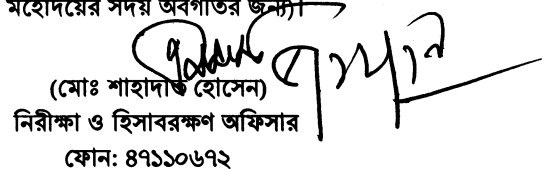 মহোদয়ের সদয় অবগতির জন্য)।
(মোঃ শাহাদাত হোসেন)
নিরীক্ষা ও হিসাবরক্ষণ অফিসার
ফোন: ৪৭১১০৬৭২